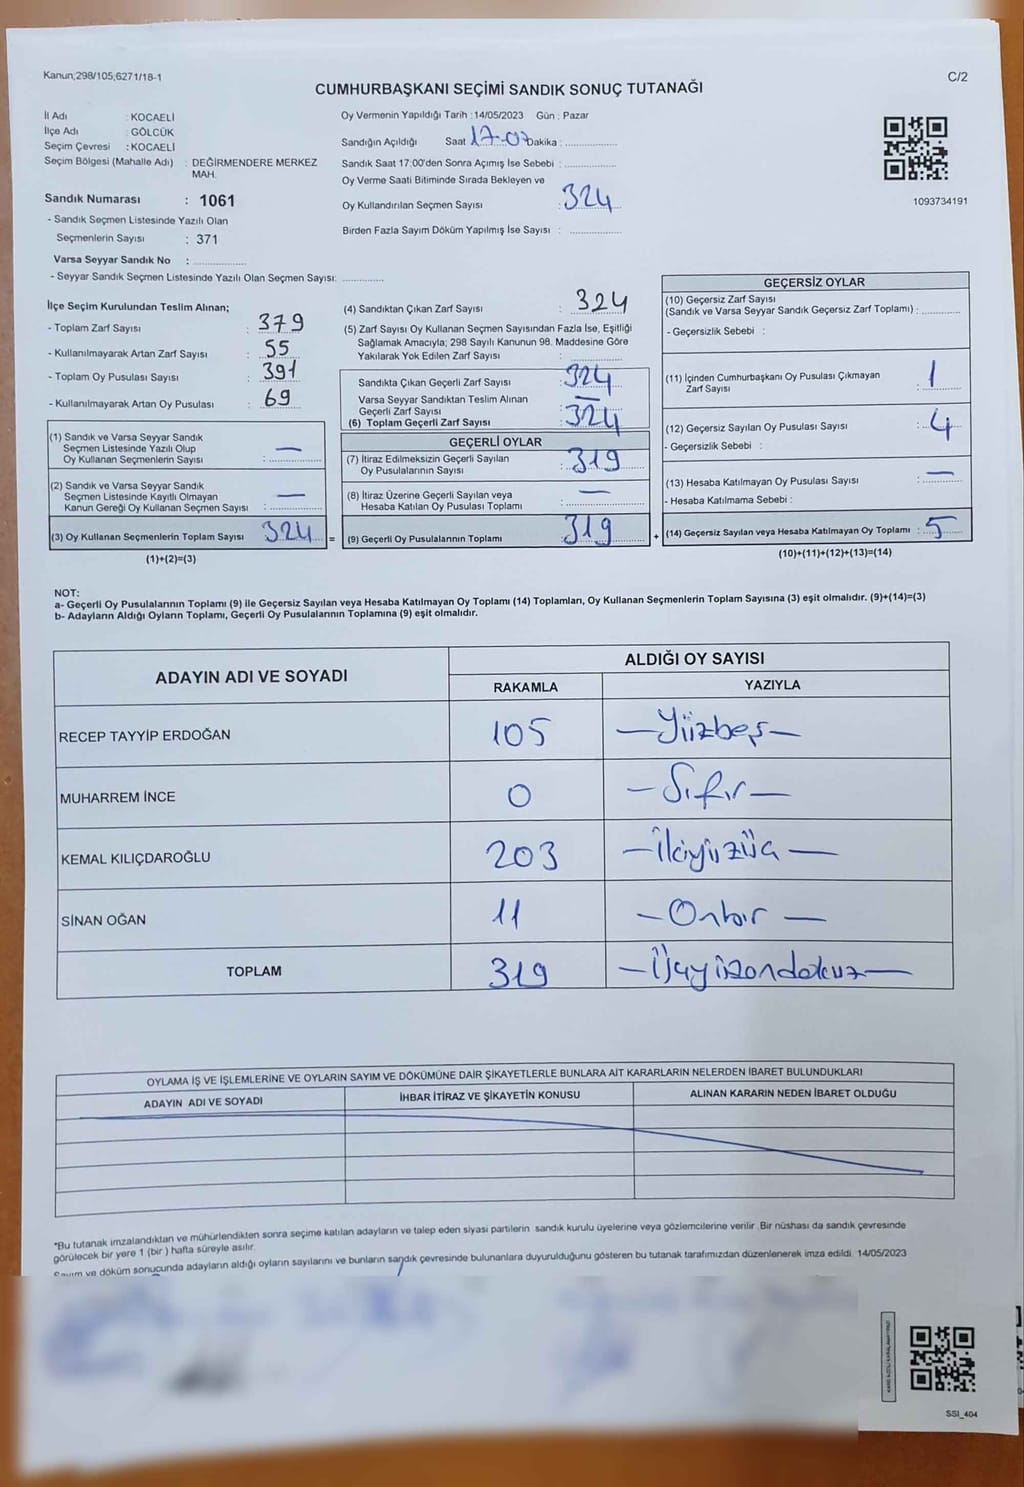 Kanun;298/105;6271/18-1
C/2
CUMHURBAŞKANI SEÇİMİ SANDIK SONUÇ TUTANAĞI
İl Adı : KOCAELİ
İlçe Adı : GÖLCÜK
Seçim Çevresi : KOCAELİ
Seçim Bölgesi (Mahalle Adı) : DEĞİRMENDERE MERKEZ
MAH.
Sandık Numarası : 1061
- Sandık Seçmen Listesinde Yazılı Olan
Seçmenlerin Sayısı : 371
Varsa Seyyar Sandık No :
- Seyyar Sandık Seçmen Listesinde Yazılı Olan Seçmen Sayısı:
Oy Vermenin Yapıldığı Tarih : 14/05/2023 Gün : Pazar
Sandığın Açıldığı Saat 17-07 Dakika :
Sandık Saat 17:00'den Sonra Açımış İse Sebebi :
Oy Verme Saati Bitiminde Sırada Bekleyen ve
Oy Kullandırılan Seçmen Sayısı : 324
Birden Fazla Sayım Döküm Yapılmış İse Sayısı :
1093734191
İlçe Seçim Kurulundan Teslim Alınan;
- Toplam Zarf Sayısı : 379
- Kullanılmayarak Artan Zarf Sayısı : 55
- Toplam Oy Pusulası Sayısı : 391
- Kullanılmayarak Artan Oy Pusulası : 69
(1) Sandık ve Varsa Seyyar Sandık
Seçmen Listesinde Yazılı Olup
Oy Kullanan Seçmenlerin Sayısı : —
(2) Sandık ve Varsa Seyyar Sandık
Seçmen Listesinde Kayıtlı Olmayan
Kanun Gereği Oy Kullanan Seçmen Sayısı : —
(3) Oy Kullanan Seçmenlerin Toplam Sayısı 324 =
(1)+(2)=(3)
(4) Sandıktan Çıkan Zarf Sayısı : 324
(5) Zarf Sayısı Oy Kullanan Seçmen Sayısından Fazla İse, Eşitliği
Sağlamak Amacıyla; 298 Sayılı Kanunun 98. Maddesine Göre
Yakılarak Yok Edilen Zarf Sayısı :
Sandıkta Çıkan Geçerli Zarf Sayısı : 324
Varsa Seyyar Sandıktan Teslim Alınan
Geçerli Zarf Sayısı : —
(6) Toplam Geçerli Zarf Sayısı : 324
GEÇERLİ OYLAR
(7) İtiraz Edilmeksizin Geçerli Sayılan
Oy Pusulalarının Sayısı : 319
(8) İtiraz Üzerine Geçerli Sayılan veya
Hesaba Katılan Oy Pusulası Toplamı : —
(9) Geçerli Oy Pusulalarının Toplamı : 319 +
GEÇERSİZ OYLAR
(10) Geçersiz Zarf Sayısı
(Sandık ve Varsa Seyyar Sandık Geçersiz Zarf Toplamı) :
- Geçersizlik Sebebi :
(11) İçinden Cumhurbaşkanı Oy Pusulası Çıkmayan
Zarf Sayısı : 1
(12) Geçersiz Sayılan Oy Pusulası Sayısı : 4
- Geçersizlik Sebebi :
(13) Hesaba Katılmayan Oy Pusulası Sayısı : —
- Hesaba Katılmama Sebebi :
(14) Geçersiz Sayılan veya Hesaba Katılmayan Oy Toplamı : 5
(10)+(11)+(12)+(13)=(14)
NOT:
a- Geçerli Oy Pusulalarının Toplamı (9) ile Geçersiz Sayılan veya Hesaba Katılmayan Oy Toplamı (14) Toplamları, Oy Kullanan Seçmenlerin Toplam Sayısına (3) eşit olmalıdır. (9)+(14)=(3)
b- Adayların Aldığı Oyların Toplamı, Geçerli Oy Pusulalarının Toplamına (9) eşit olmalıdır.
ADAYIN ADI VE SOYADI
ALDIĞI OY SAYISI
RAKAMLA YAZIYLA
RECEP TAYYİP ERDOĞAN 105 —Yüzbeş—
MUHARREM İNCE 0 —Sıfır—
KEMAL KILIÇDAROĞLU 203 —İkiyüzüç—
SİNAN OĞAN 11 —Onbir—
TOPLAM 319 —Üçyüzondokuz—
OYLAMA İŞ VE İŞLEMLERİNE VE OYLARIN SAYIM VE DÖKÜMÜNE DAİR ŞİKAYETLERLE BUNLARA AİT KARARLARIN NELERDEN İBARET BULUNDUKLARI
ADAYIN ADI VE SOYADI İHBAR İTİRAZ VE ŞİKAYETİN KONUSU ALINAN KARARIN NEDEN İBARET OLDUĞU
*Bu tutanak imzalandıktan ve mühürlendikten sonra seçime katılan adayların ve talep eden siyasi partilerin sandık kurulu üyelerine veya gözlemcilerine verilir. Bir nüshası da sandık çevresinde
görülecek bir yere 1 (bir) hafta süreyle asılır.
Sayım ve döküm sonucunda adayların aldığı oyların sayılarını ve bunların sandık çevresinde bulunanlara duyurulduğunu gösteren bu tutanak tarafımızdan düzenlenerek imza edildi. 14/05/2023
SSI_404